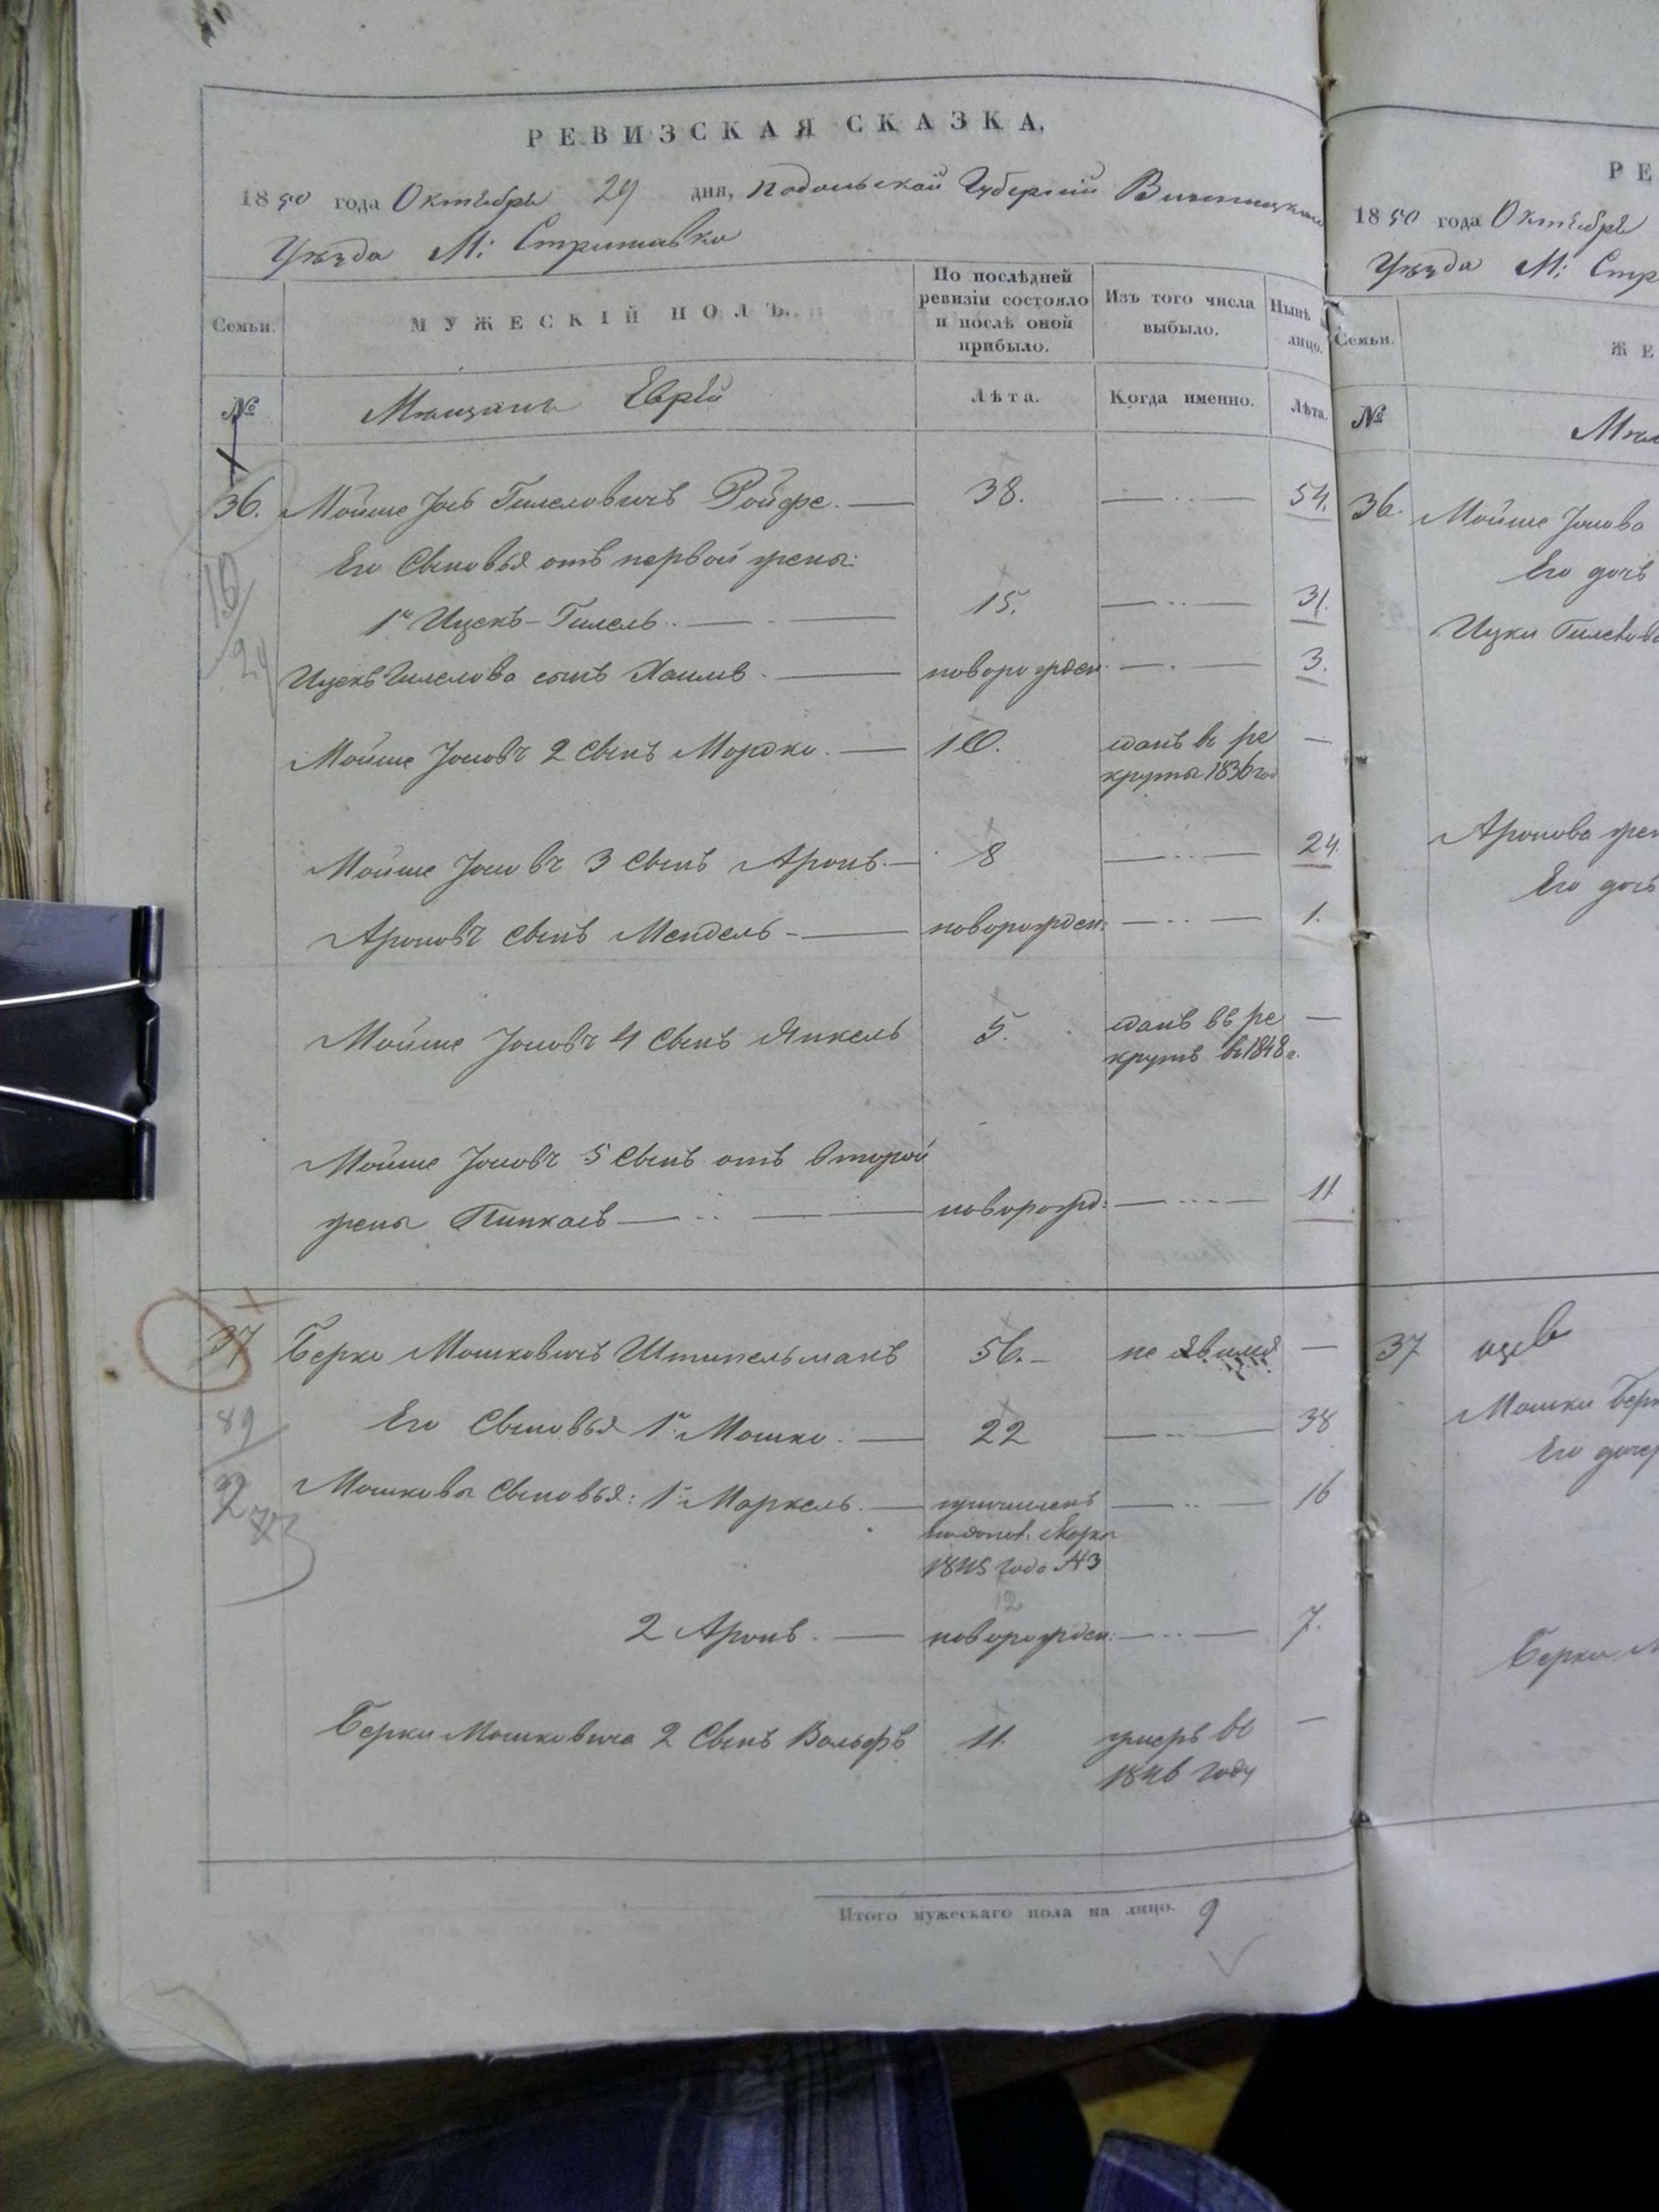 РЕВИЗСКАЯ СКАЗКА.
1850 года Октября 29 дня, Подольской Губернии Винницкаго
Уѣзда М: Стрижавка
Семьи.
МУЖЕСКІЙ ПОЛЪ.
По послѣдней ревизіи состояло и послѣ оной прибыло.
Изъ того числа выбыло.
Нынѣ лицо.
№
Мѣщане Евреи
Лѣта.
Когда именно.
Лѣта.
36. Мойше Іось Гилеловичъ Ройфе. — 38. — 54.
Его Сыновья отъ первой жены:
1й Ицекъ-Гилель. — 15. — 31.
Ицекъ Гилелова сынъ Хаимъ. — новорожден: — 3.
Мойше Іосовъ 2 Сынъ Мордко. — 10. сданъ въ ре —
круты 1836 год
Мойше Іосовъ 3 Сынъ Аронъ. — 8 — 24.
Ароновъ Сынъ Мендель — новорожден: — 1.
Мойше Іосовъ 4 Сынъ Янкель 5. сданъ въ ре —
круты въ 1848 г.
Мойше Іосовъ 5 Сынъ отъ второй
жены Пинхасъ — новорожд: — 11
37 Берко Мошковичъ Штипельманъ 56. — не явился —
Его Сыновья 1й Мошко. — 22 — 38
89
2
Мошковы Сыновья: 1й Маркель. — причисленъ — 16
1845 года №3
12
2 Аронъ. — новорожден: — 7.
Берки Мошковича 2 Сынъ Вольфъ 11. умеръ въ —
1846 году
Итого мужескаго пола на лицо. 9
РЕ
1850 года Октября
Уѣзда М: Стр
Семьи.
ЖЕ
№
36. Мойше Іосова
Его дочь
Ицки Гилелова
Аронова жен
Его дочь
37
Мошки Берк
Его дочер
Берки М